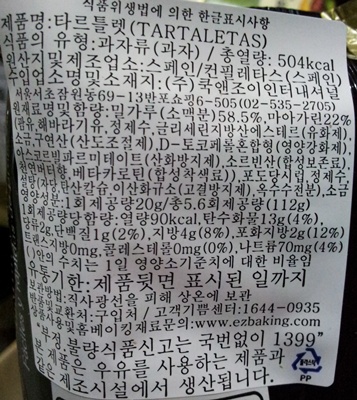 식품위생법에 의한 한글표시사항
제품명:타르틀렛(TARTALETAS)
식품의 유형:과자류(과자) / 총열량: 504kcal
원산지및제조업소:스페인/컨필레타스(스페인)
수입업소명및소재지:(주)쿡앤조이인터내셔널
서울서초잠원동69-13반포쇼핑6-505(02-535-2705)
원재료명및함량:밀가루(소맥분)58.5%,마아가린22%
(팜유,해바라기유,정제수,글리세린지방산에스테르(유화제),
소금,구연산(산도조절제),D-토코페롤혼합형(영양강화제),
아스코르빌파르미테이트(산화방지제),소르빈산(합성보존료),
천연버터향,베타카로틴(합성착색료)),포도당시럽,정제수,
탄산칼슘,이산화규소(고결방지제),옥수수전분),소금
성분:1회제공량20g/총5.6회제공량(112g)
1회제공량당함량:열량90kcal,탄수화물13g(4%),
당류2g,단백질1g(2%),지방4g(8%),포화지방2g(12%)
트랜스지방0mg,콜레스테롤0mg(0%),나트륨70mg(4%)
( )안의 수치는 1일 영양소기준치에 대한 비율임
유통기한:제품뒷면 표시된 일까지
보관방법:직사광선을 피해 상온에 보관
반품및교환처:구입처/ 고객기쁨센터:1644-0935
상품사용및홈베이킹재료문의:www.ezbaking.com
"부정,불량식품신고는 국번없이 1399"
본 제품은 우유를 사용하는 제품과
같은 제조시설에서 생산됩니다.
PP